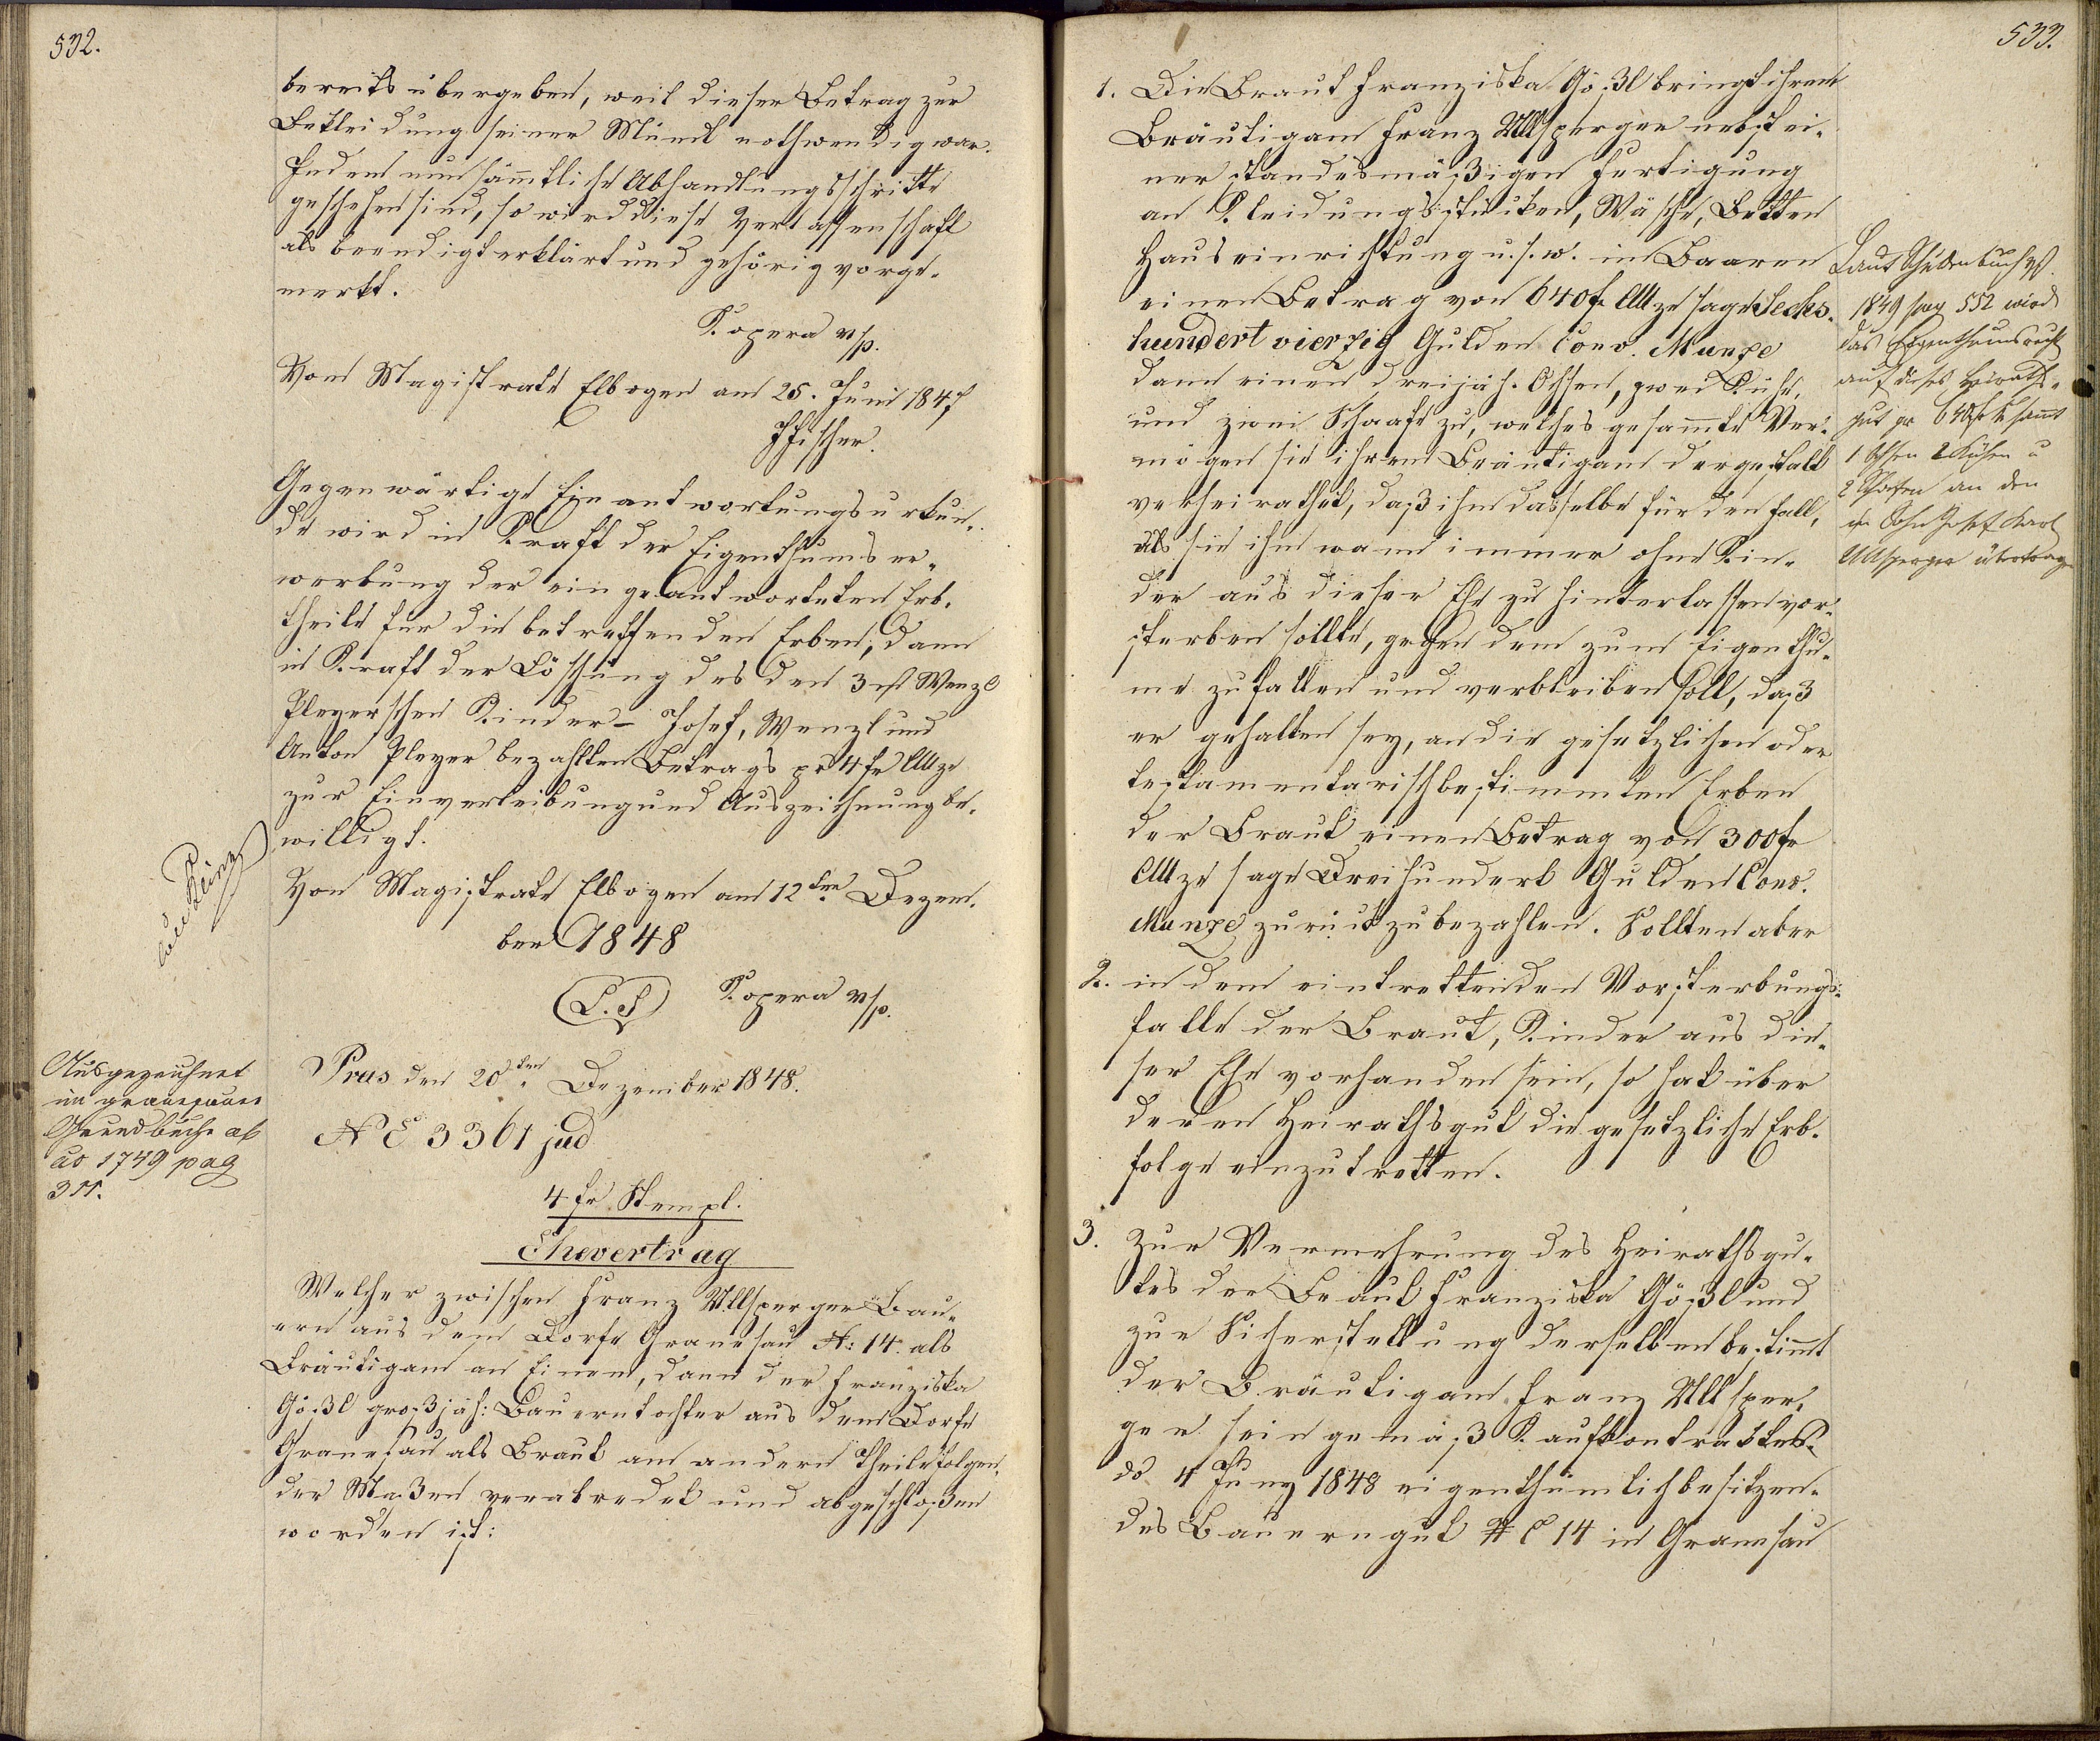 532.
bereits übergeben, weil dieser Betrag zur
Bekleidung seiner Mündl nothwendig war.
Indem nun sämmtliche Abhandlungsschritte
geschehen sind, so wird diese Verlassenschaft
als beendigt erklärt und gehörig vorge-
merkt.
Kopera mp.
Vom Magistrate Elbogen am 25. Juni 1847
Fischer.
Gegenwärtige Einantwortungsurkun-
de wird in Kraft der Eigenthumser-
werbung der eingeantworteten Erb-
theile für die betreffenden Erben, dann
in Kraft der Löschung des den 3 Wenzl
Pleyerschen Kinder – Josef, Wenzl und
Anton Pleyer bezahlten Betrags pr 4 fr CMze
zur Einverleibung und Auszeichnung be-
willigt.
Vom Magistrate Elbogen am 12ten Dezem-
ber 1848
L.S Kopera mp.
Ausgezeichnet
im granesauer
Grundbuche ab
ao 1749 pag
311.
Präs den 20ten Dezember 1848.
N E 3361 jud
4 fr Stempl.
Ehevertrag
Welcher zwischen Franz Ullsperger Bau-
ern aus dem Dorfe Granesau N: 14 als
Bräutigam an Einem, dann der Franziska
Gößl großjäh: Bauerntochter aus dem Dorfe
Granesau als Braut am andern Theile folgen-
der Maßen verabredet und abgeschloßen
worden ist:
533.
1. Die Braut Franziska Gößl bringt ihrem
Bräutigam Franz Ullsperger nebst ei-
ner standesmäßigen Fertigung
an Kleidungsstücken, Wäsche, Betten
Hauseinrichtung u.s.w. in Baaren
einen Betrag von 640 fr CMze sage Sechs-
hundert vierzig Gulden Conv. Munze
dann einen dreijäh. Ochsen, zwei Kühe,
und zwei Schaafe zu, welches gesammte Ver-
mögen sie ihrem Bräutigam dergestalt
verheirathet, daß ihm dasselbe für den Fall,
als sie ihm wann immer ohne Kin-
der aus dieser Ehe zu hinterlassen vor-
sterben sollte, gegen dem zum Eigenthu-
me zufallen und verbleiben soll, daß
er gehalten sey, an die gesetzlichen oder
testamentarisch bestimmten Erben
der Braut einen Betrag von 300 fr
CMze sage Dreihundert Gulden Conv.
Munze zurückzubezahlen. Sollten aber
2. in dem eintrettenden Vorsterbungs-
falle der Braut, Kinder aus die-
ser Ehe vorhanden sein, so hat über
deren Heirathsgut die gesetzliche Erb-
folge einzutretten.
3. Zur Vermehrung des Heirathsgu-
tes der Braut Franziska Gößl und
zur Sicherstellung derselben bestimmt
der Bräutigam Franz Ullsper-
ger sein gemäß Kaufkontraktes
do 4 Juny 1848 eigenthümlich besitzen-
des Bauerngut N C 14 in Granesau
Laut Schuldenbuch
1849 pag 552 wird
das Eigenthumsrecht
auf dieses Heiraths-
gut pr 640 fr sammt
1 Ochsen 2 Kühen u
2 Schafen an den
Sohn Josef Karl
Ullsperger übertragen